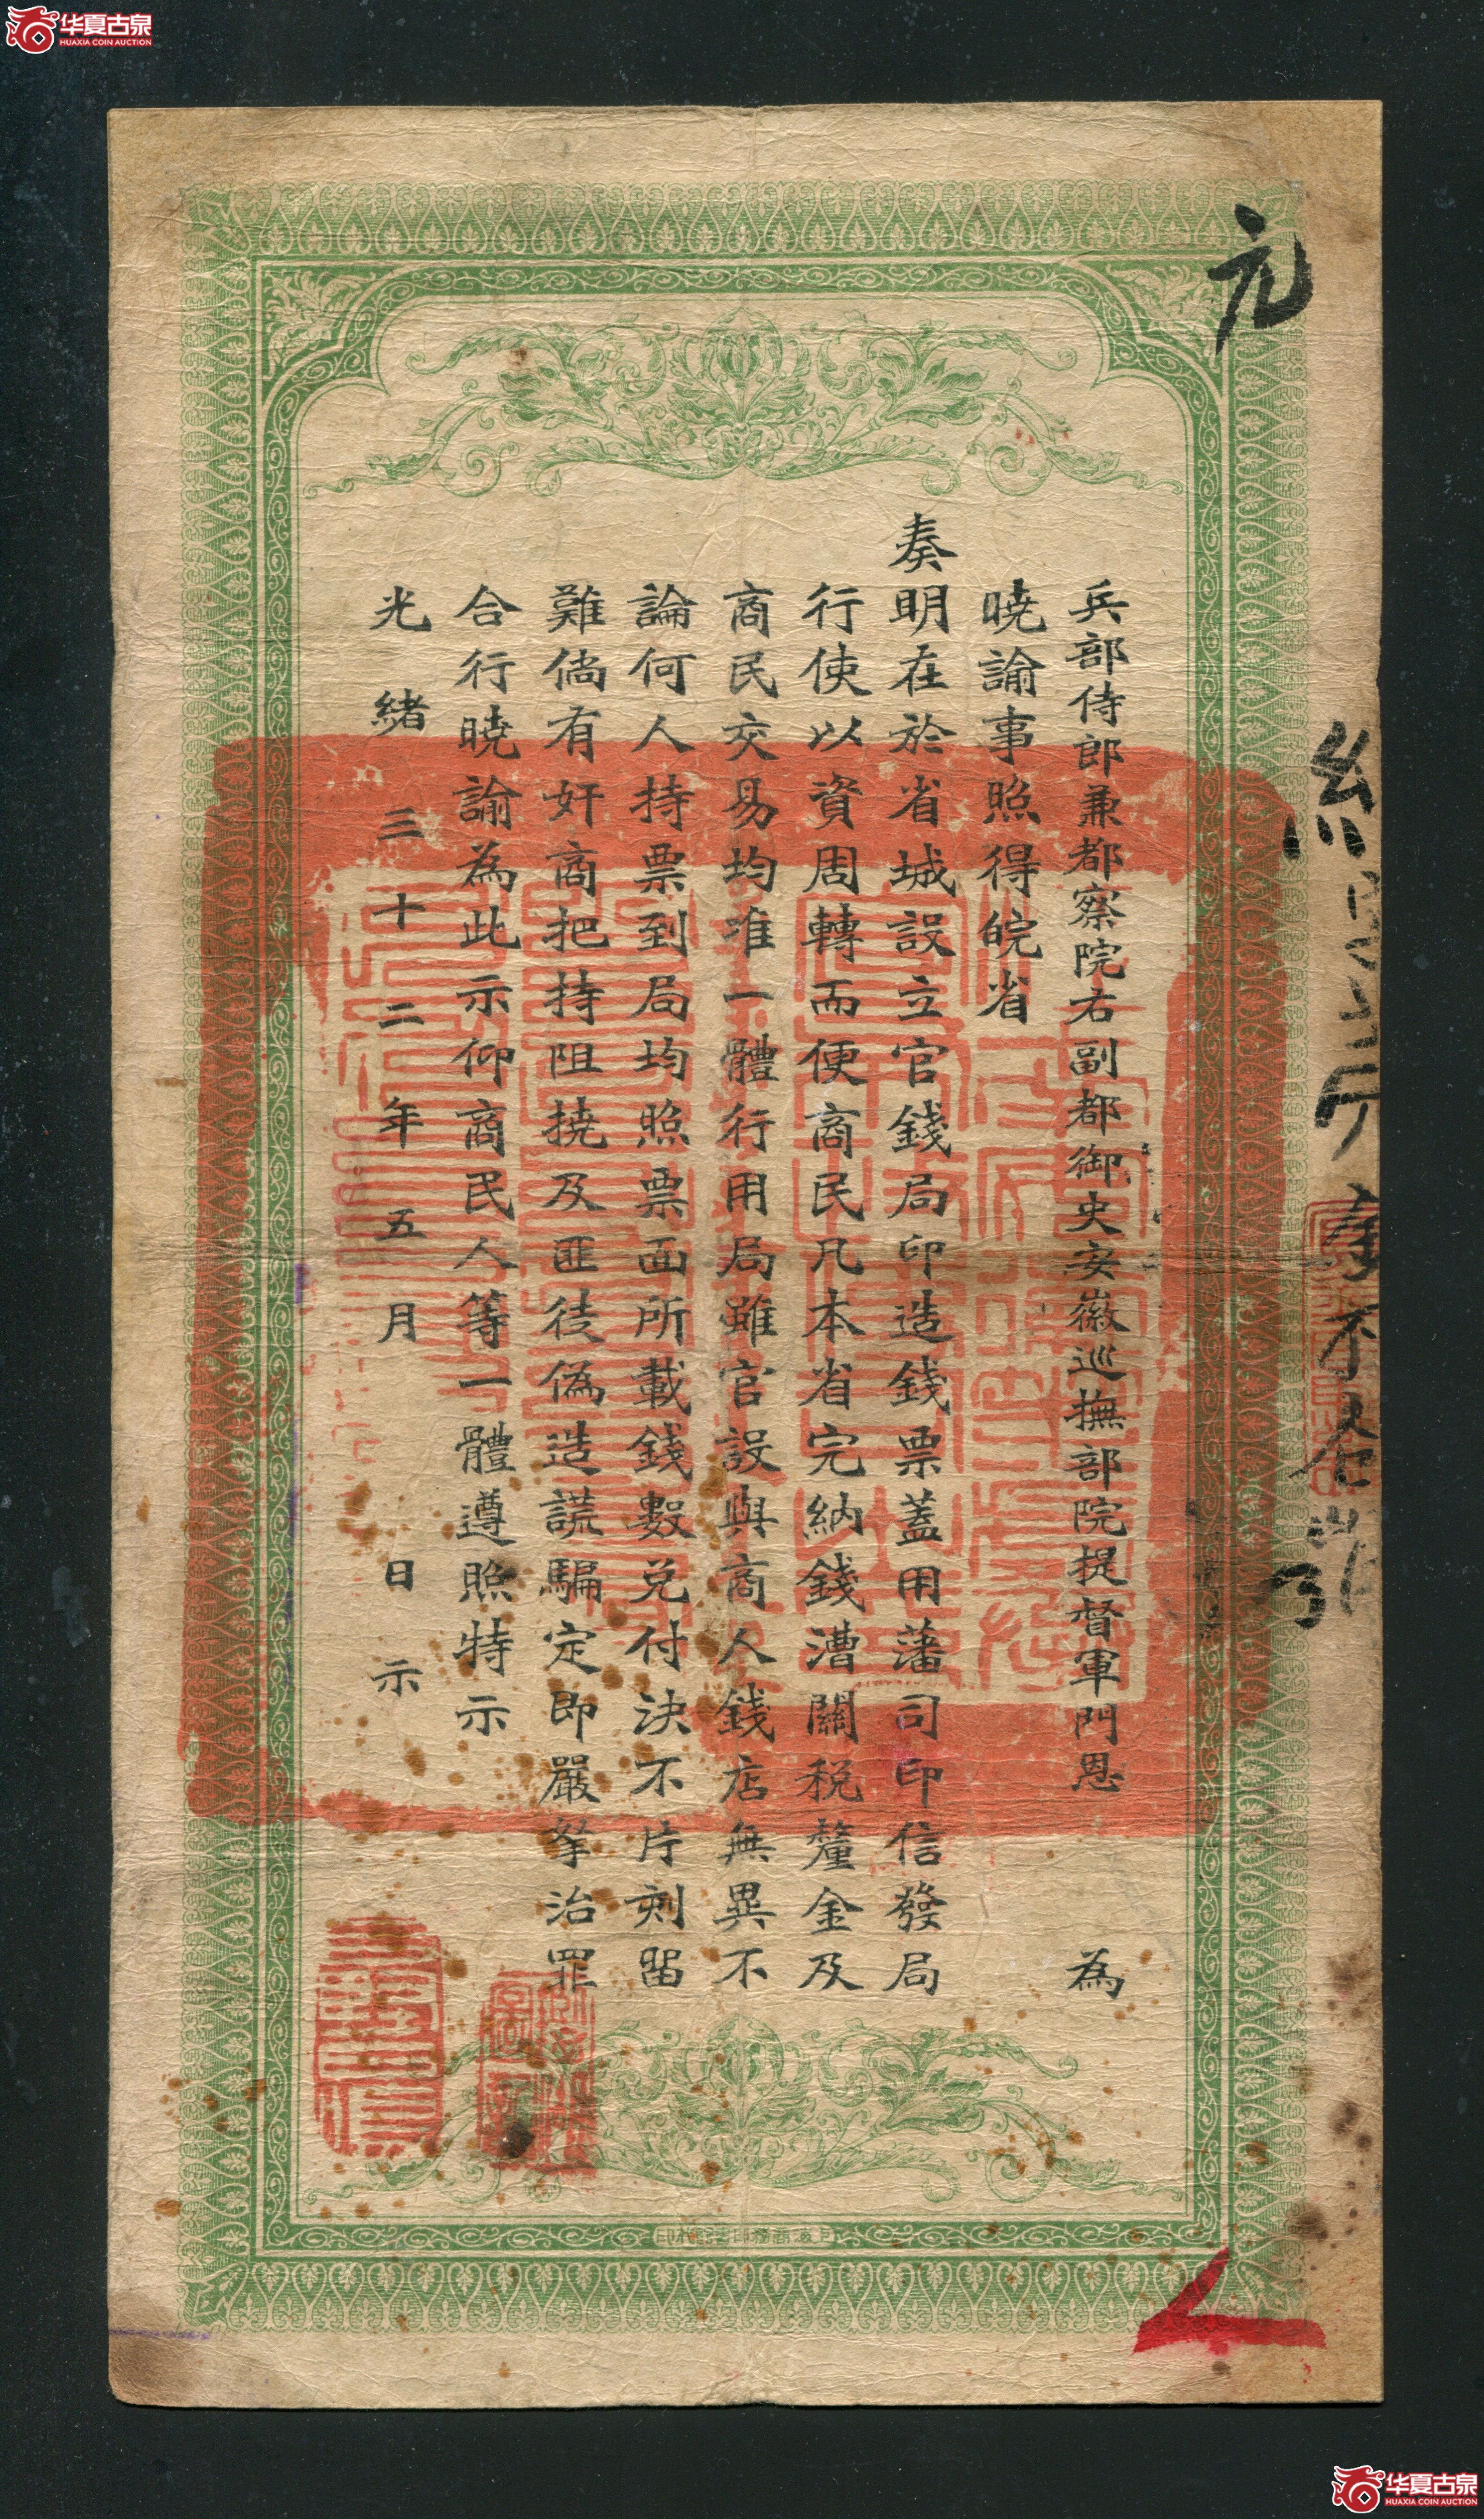 华夏古泉
HUAXIA COIN AUCTION
元
兵部侍郎兼都察院右副都御史安徽巡撫部院提督軍門恩 為
曉諭事照得皖省
奏明在於省城設立官錢局印造錢票蓋用藩司印信發局
行使以資周轉而便商民凡本省完納錢漕關稅釐金及
商民交易均准一體行用局雖官設與商人錢店無異不
論何人持票到局均照票面所載錢數兌付決不片刻留
難倘有奸商把持阻撓及匪徒偽造謊騙定即嚴拏治罪
合行曉諭為此示仰商民人等一體遵照特示
光緒三十二年五月 日示
华夏古泉
HUAXIA COIN AUCTION